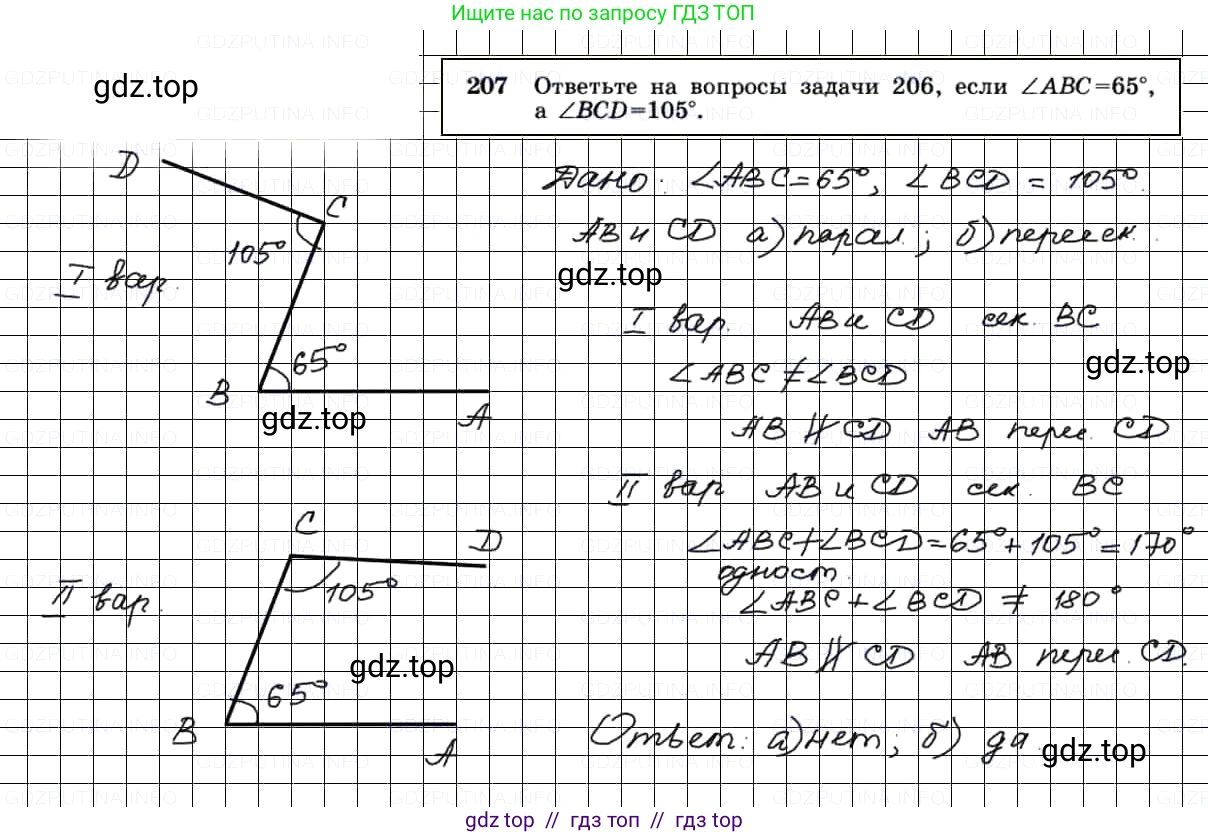 Ищите нас по запросу ГДЗ ТОП
207 Ответьте на вопросы задачи 206, если ∠ABC=65°,
а ∠BCD=105°.
gdz.top
D
C
105°
I вар.
65°
B
A
gdz.top
Дано: ∠ABC=65°, ∠BCD = 105°.
AB и CD а) парал.; б) пересек.
gdz.top
I вар. AB и CD сек. BC
gdz.top
∠ABC ≠ ∠BCD
AB ∦ CD AB перес. CD
II вар AB и CD сек. BC
∠ABC+∠BCD=65°+105°=170°
одност.
∠ABC+∠BCD ≠ 180°
AB ∦ CD AB перес. CD.
C
D
105°
II вар.
gdz.top
65°
B
A
Ответ: а) нет, б) да.
gdz.top
gdz top // гдз топ // гдз top
GDZPUTINA.INFO